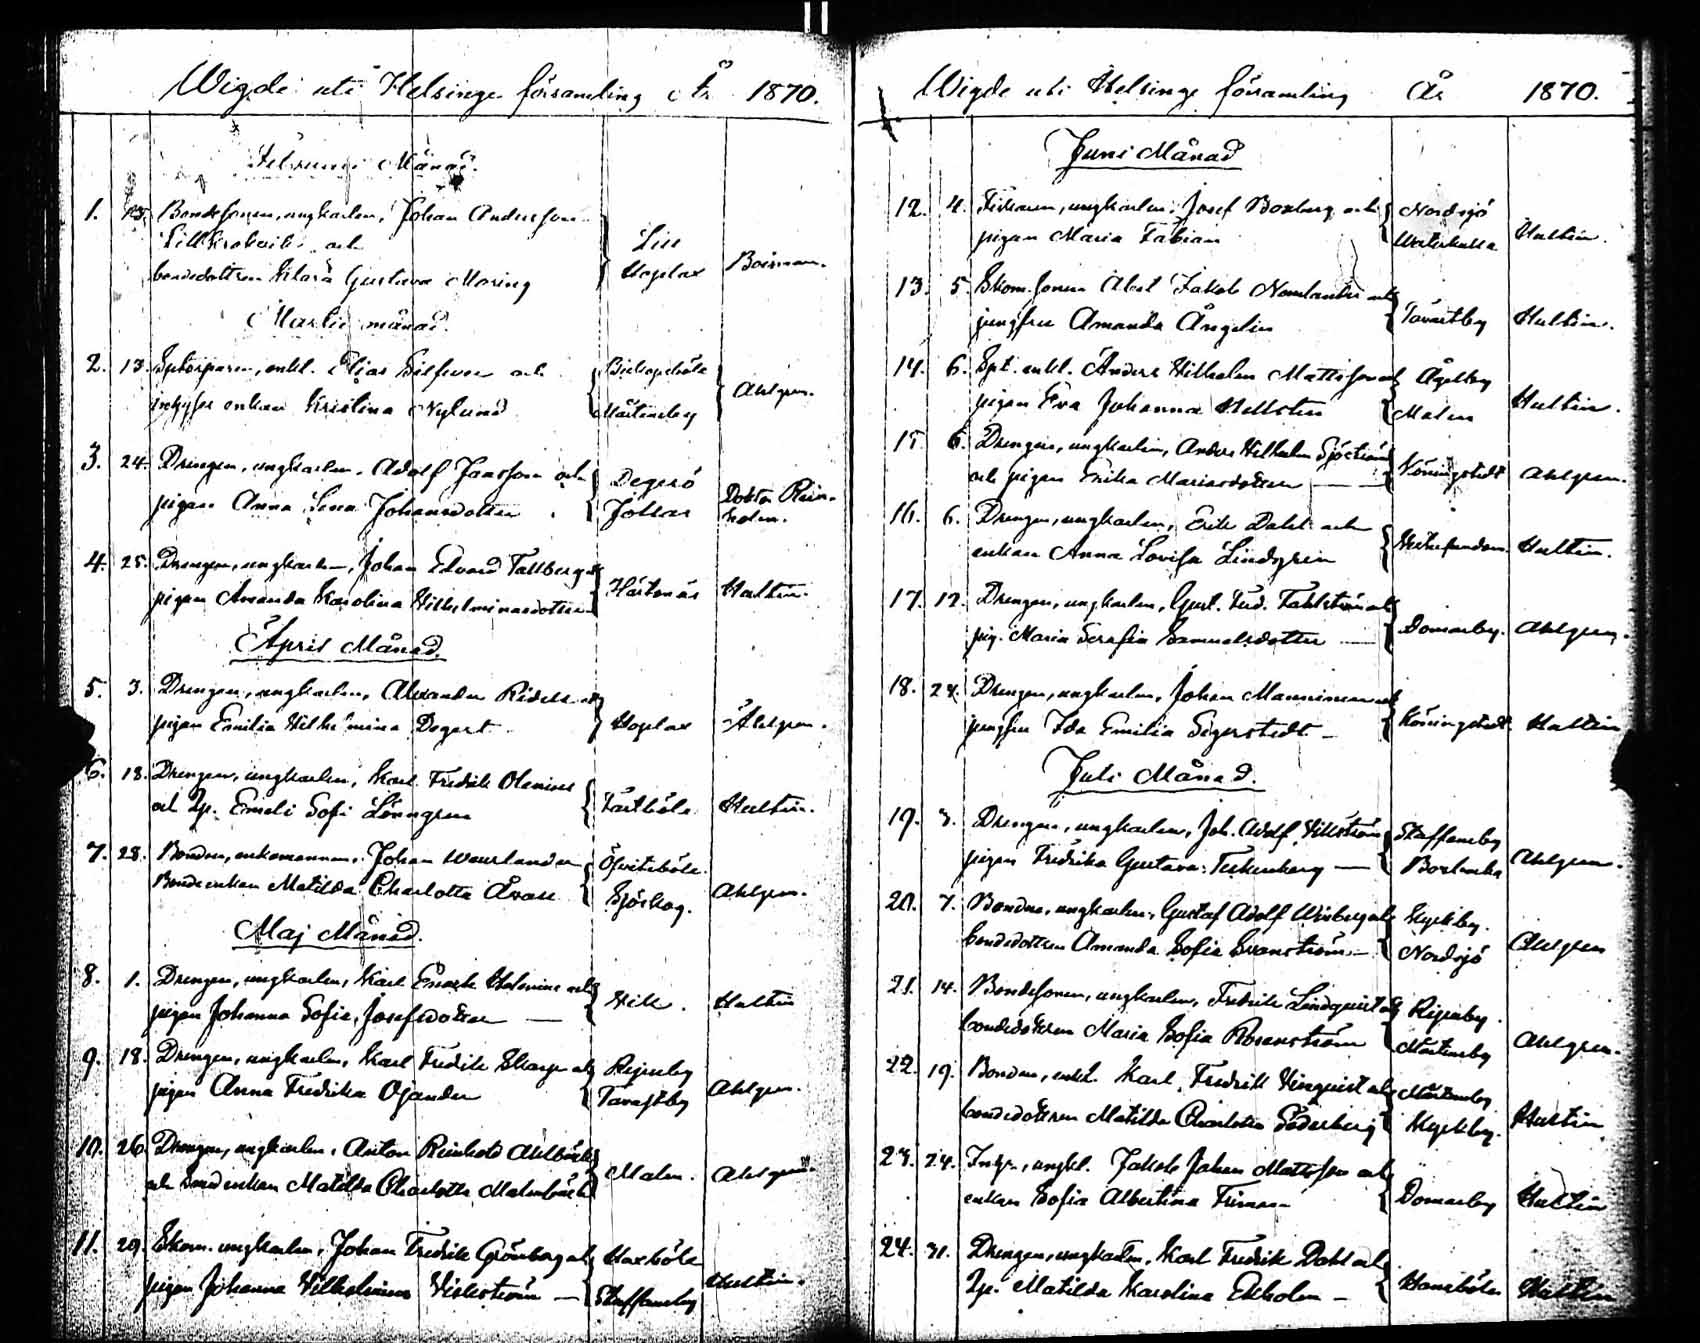 Wigde uti Helsinge församling År 1870.
Februari Månad.
1. Bondesonen, ungkarlen, Johan Andersson
och Lill
bondedottren Klara Gustava Moring Hoplax Boisman.
Martii månad.
2. 13. enkl. Elias och
enkan Kristina Nylund Mårtensby Ahlgren.
3. 24. Drengen, ungkarlen, Adolf Jansson och Degerö
pigan Anna Lena Johansdotter Jollas Doktor
4. 25. Drengen, ungkarlen, Johan Edvard Tallberg och
pigan Amanda Karolina Wilhelminasdotter Hertonäs Hultin.
April Månad.
5. 3. Drengen, ungkarlen, Alexander och
pigan Emilia Wilhelmina Degert Hoplax Ahlgren.
6. 18. Drengen, ungkarlen, Karl Fredrik Olenius
och Emeli Sofi Lönngren Fastböle Hultin.
7. 28. Bonden, enkomannen, Johan
Bondeenkan Matilda Charlotta Sjöskog. Ahlgren.
Maj Månad.
8. 1. Drengen, ungkarlen, Karl Enock och
pigan Johanna Sofia Josefsdotter — Wik. Hultin
9. 18. Drengen, ungkarlen, Karl Fredrik och
pigan Anna Fredrika Ojander Tavastby Ahlgren.
10. 26. Drengen, ungkarlen, Anton Reinhold Ahlbäck
och enkan Matilda Charlotta Malmbäck Malm. Ahlgren.
11. 29. Skom. ungkarlen, Johan Fredrik Grönberg och Haxböle
pigan Johanna Wilhelmina — Staffansby Hultin.
Wigde uti Helsinge församling År 1870.
Juni Månad
12. 4. Fiskaren, ungkarlen, Josef Boxberg och Nordsjö
pigan Maria Fabian Westerkulla Hultin.
13. 5. Skom. sonen Abel Jakob och
jungfru Amanda Ångelin Tavastby Hultin.
14. 6. enkl. Anders Wilhelm Mattsson och Åggelby
pigan Eva Johanna Hellsten Malm Hultin.
15. 6. Drengen, ungkarlen, Anders Wilhelm Sjöström
och pigan Erika Mariasdotter — Köningstedt Ahlgren.
16. 6. Drengen, ungkarlen, Erik Dahl och
enkan Anna Lovisa Lindgren Hultin.
17. 12. Drengen, ungkarlen, Gust. Ferd. Fahlström och
pig. Maria Serafia Samuelsdotter — Domarby. Ahlgren.
18. 24. Drengen, ungkarlen, Johan Manninen och
jungfru Ida Emilia Segerstedt — Köningstedt Hultin
Juli Månad.
19. 3. Drengen, ungkarlen, Joh. Adolf Staffansby
pigan Fredrika Gustava — Ahlgren.
20. 7. Bonden, ungkarlen, Gustaf Adolf och Kyrkby.
bondedottren Amanda Sofia Svanström — Nordsjö Ahlgren
21. 14. Bondesonen, ungkarlen, Fredrik Lindqvist och
bondedottren Maria Sofia Rosenström Mårtensby Ahlgren.
22. 19. Bonden, enkl. Karl Fredrik och Mårtensby
bondedottren Matilda Charlotta Söderberg Kyrkby. Hultin
23. 24. ungkl. Jakob Johan Mattsson och
enkan Sofia Albertina Domarby Hultin
24. 31. Drengen, ungkarlen, Karl Fredrik Dahl och
Matilda Karolina Ekholm — Hanaböle Hultin